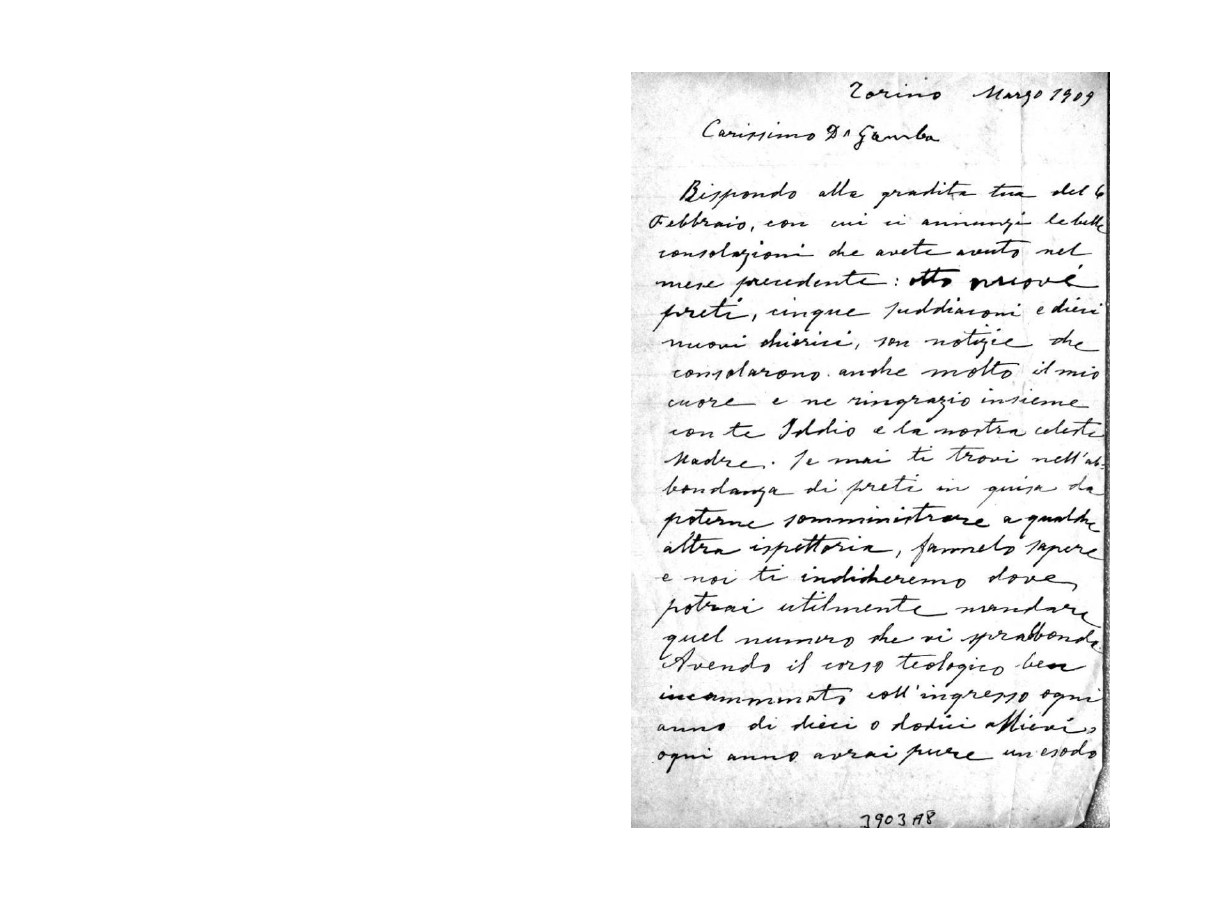 Torino Marzo 1909
Carissimo Dn Gamba
Rispondo alla gradita tua del 6
Febbraio, con cui ci annunzi le belle
consolazioni che avete avuto nel
mese precedente: otto nuovi
preti, cinque suddiaconi e dieci
nuovi chierici, son notizie che
consolarono anche molto il mio
cuore e ne ringrazio insieme
con te Iddio e la nostra celeste
Madre. Se mai ti trovi nell'ab-
bondanza di preti in guisa da
poterne somministrare a qualche
altra ispettoria, fammelo sapere
e noi ti indicheremo dove
potrai utilmente mandare
quel numero che vi sprabbonda.
Avendo il corso teologico ben
incamminato coll'ingresso ogni
anno di dieci o dodici allievi,
ogni anno avrai pure un esodo
3903 A8